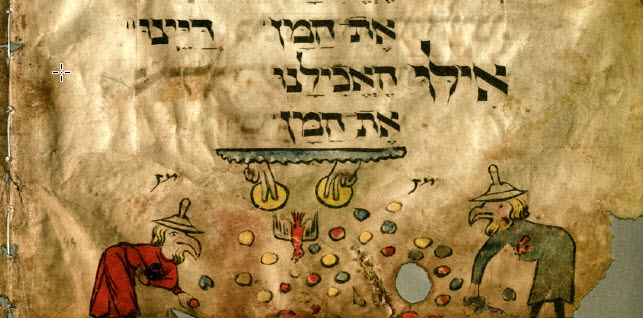 אֶת הַמָן דַיֵינוּ
אִילוּ הֶאֱכִילָנוּ
אֶת הַמָן